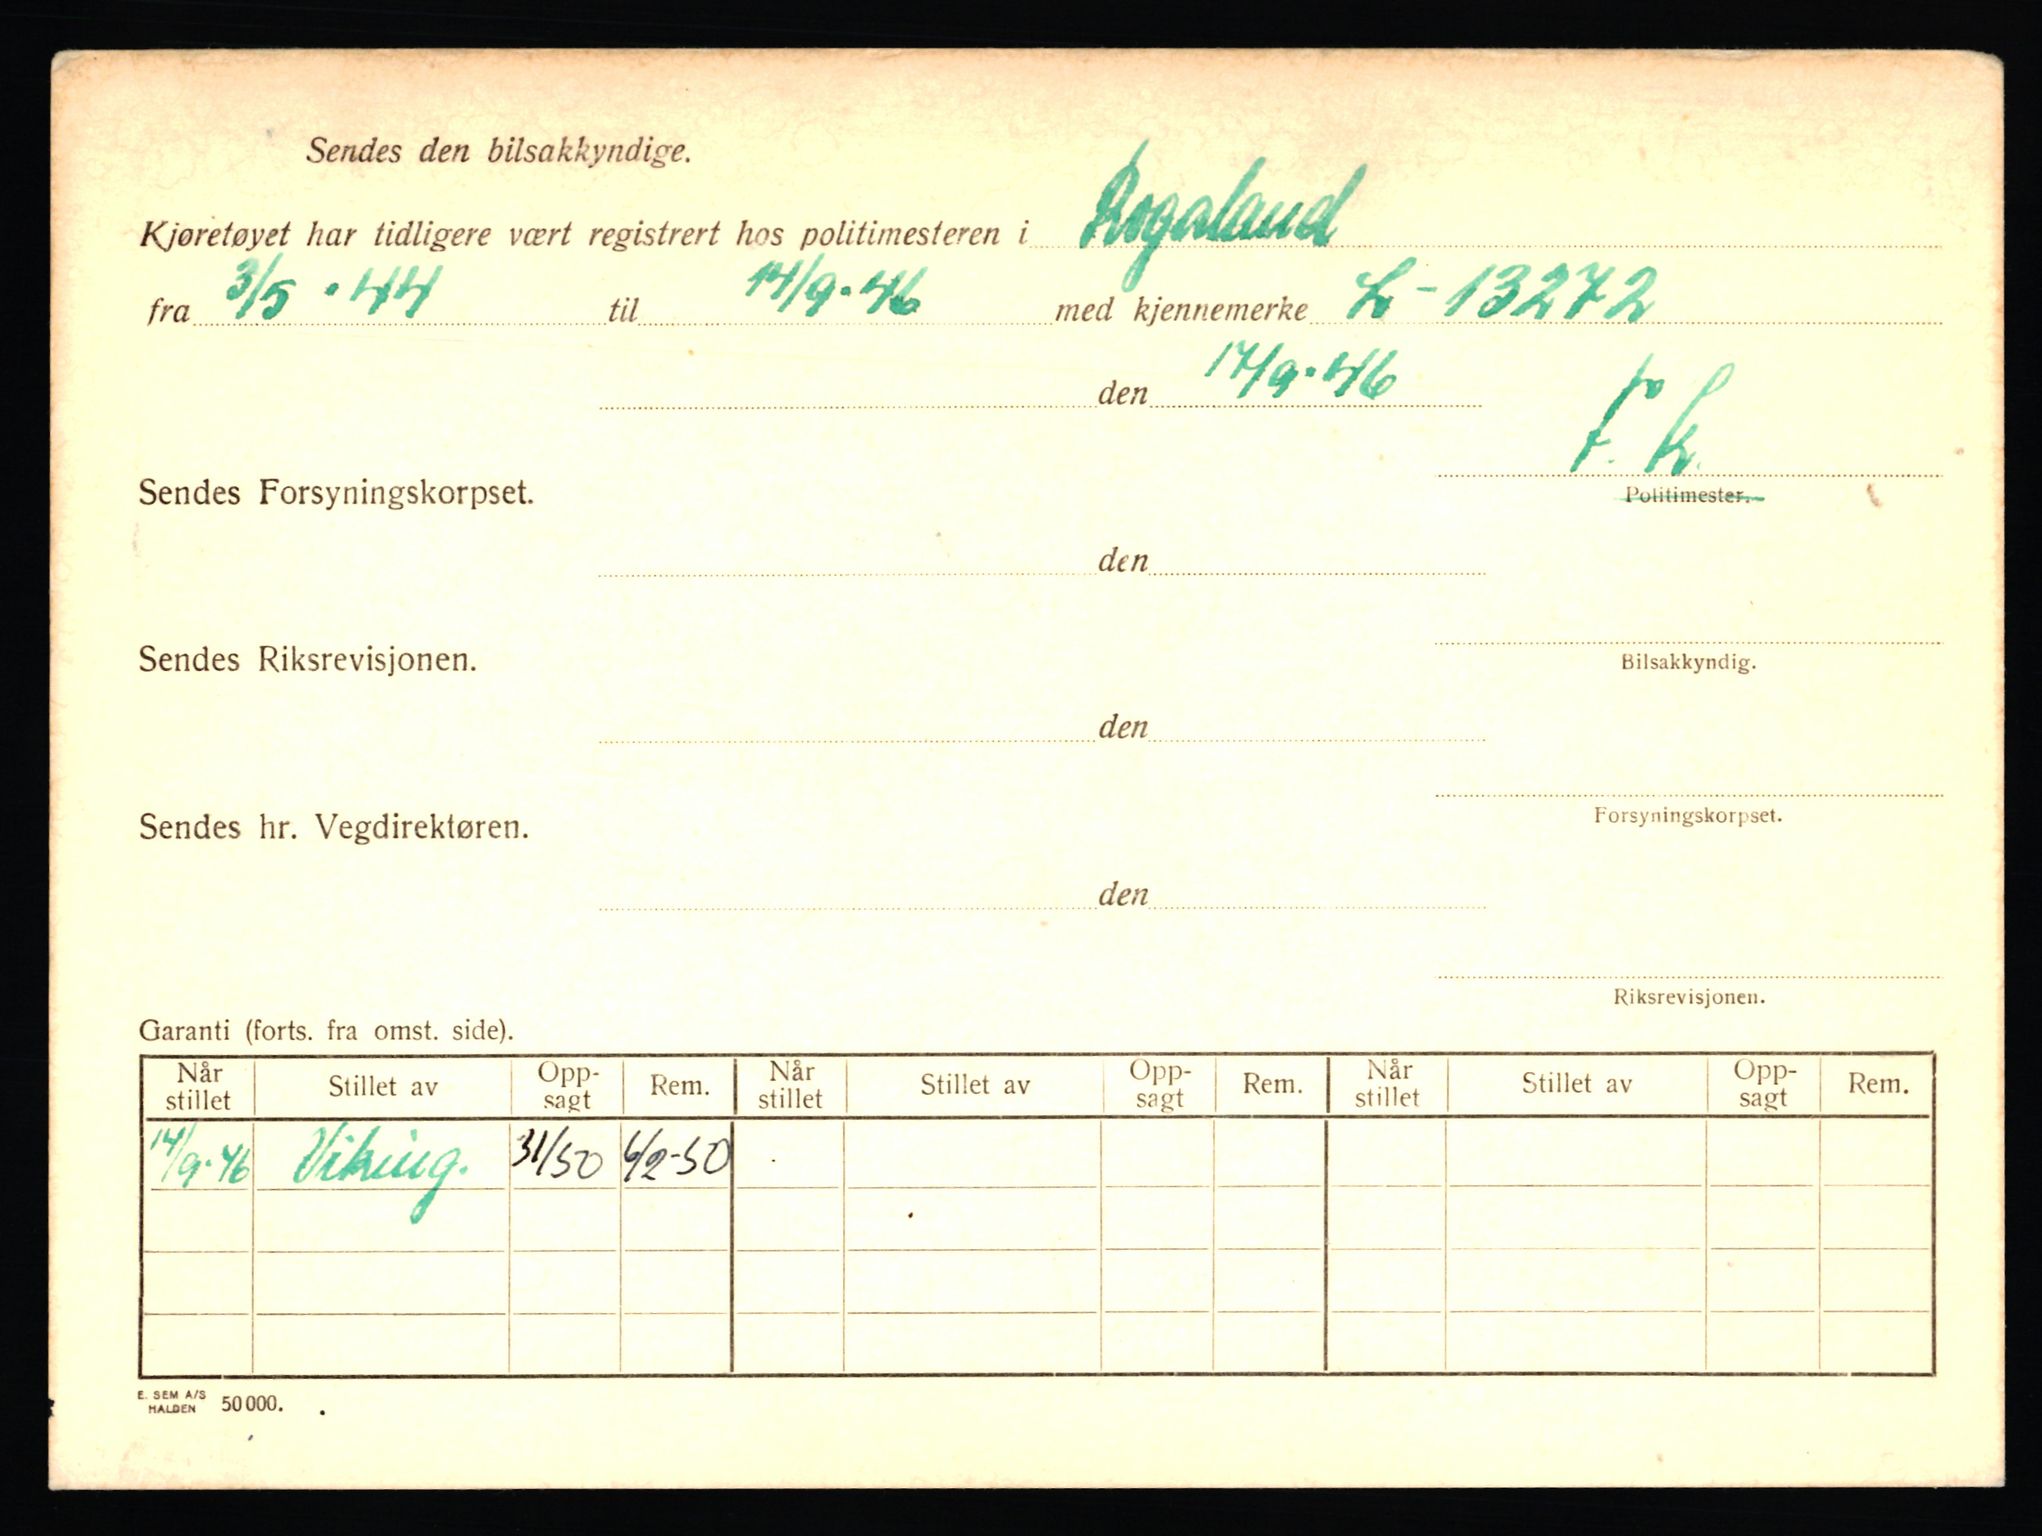 Sendes den bilsakkyndige.
Kjøretøyet har tidligere vært registrert hos politimesteren i Rogaland
fra 3/5 · 44 til 14/9 · 46 med kjennemerke L - 13272
den 17/9 · 46
Sendes Forsyningskorpset.
Politimester.
den
Sendes Riksrevisjonen.
Bilsakkyndig.
den
Sendes hr. Vegdirektøren.
Forsyningskorpset.
den
Riksrevisjonen.
Garanti (forts. fra omst. side).
Når stillet Stillet av Opp-sagt Rem. Når stillet Stillet av Opp-sagt Rem. Når stillet Stillet av Opp-sagt Rem.
14/9 · 46 Viking. 31/50 6/2-50
E. SEM A/S
HALDEN 50 000.